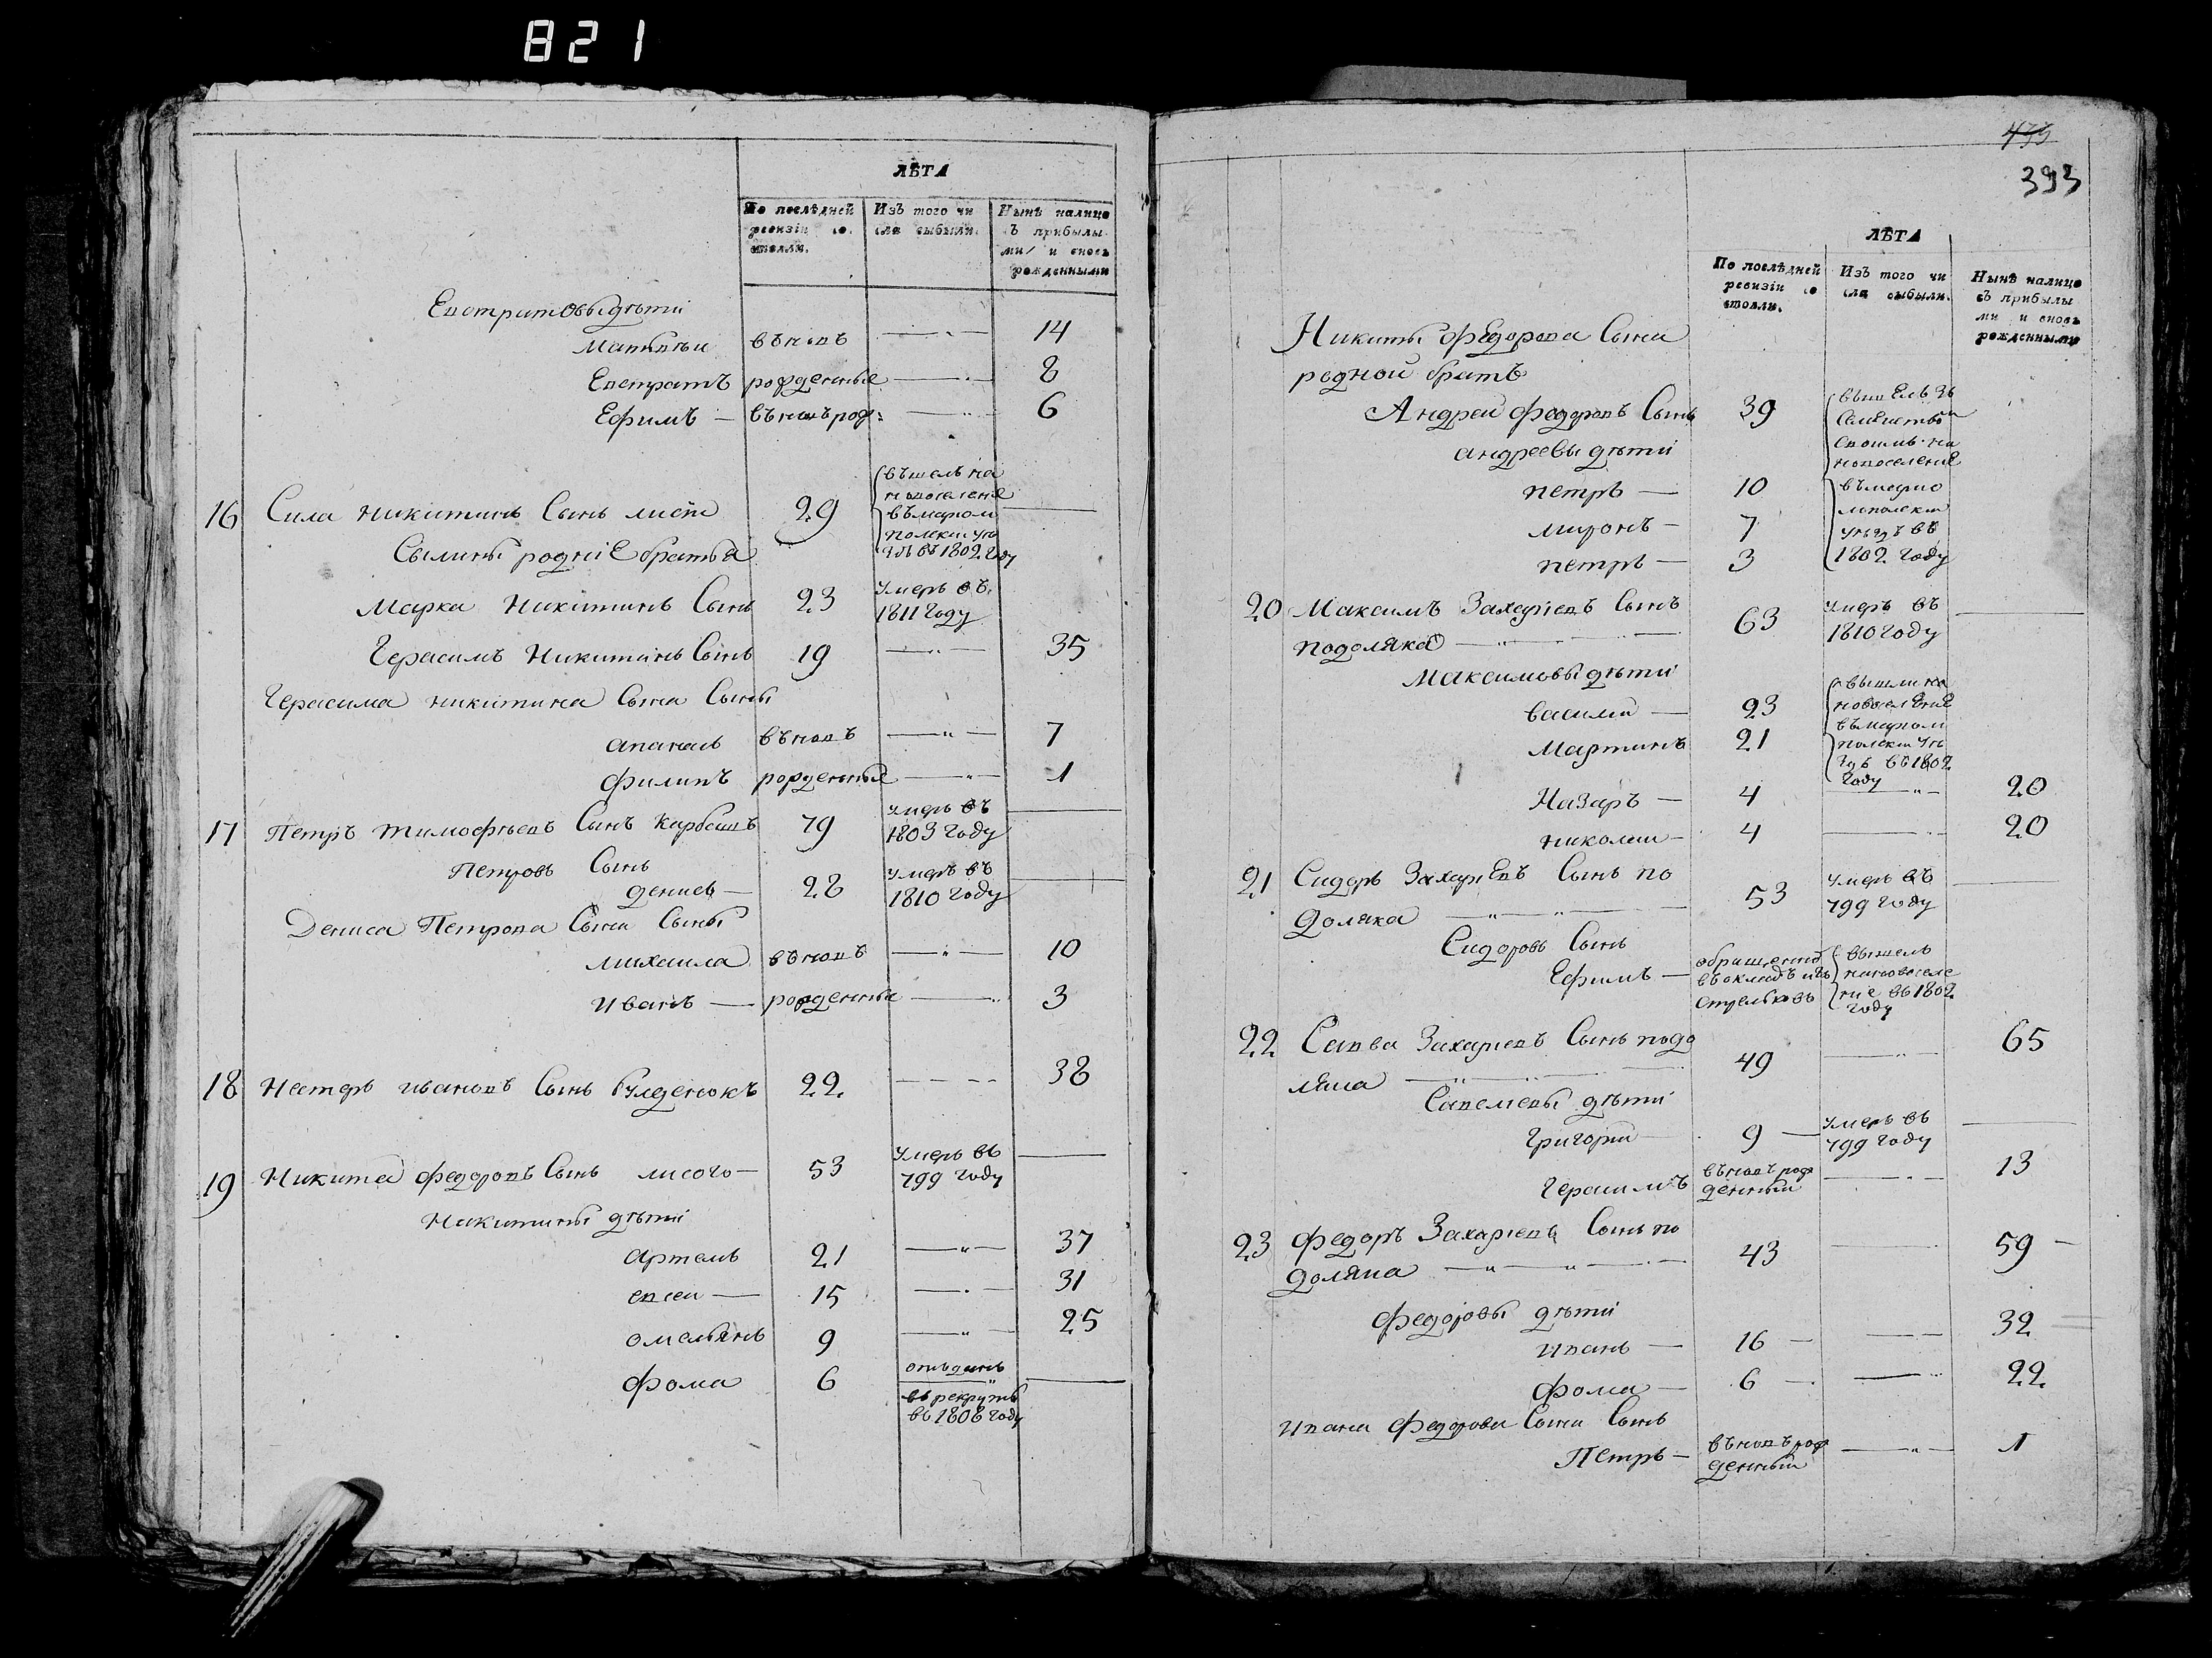 821
ЛѢТА
По послѣдней ревизіи состояли.
Изъ того числа выбыли.
Нынѣ налицо съ прибылыми и вновь рожденными
Евстратовы дѣти
Матвѣи въновъ — 14
Евстратъ рожденные — 8
Ефимъ — въновъ рож: — 6
16 Сила Никитинъ Сынъ 29 вышелъ на новоселение въ мариополскии уездъ въ 1802 году —
Сылины родніе братья
Марка Никитинъ Сынъ 23 умеръ въ 1811 году
Герасимъ Никитинъ Сынъ 19 — 35
Герасима никитина Сына Сыны
апанасъ въновъ — 7
филипъ рожденные — 1
17 Петръ тимофѣевъ Сынъ Карбашъ 79 умеръ въ 1803 году —
Петровъ Сынъ
денисъ — 28 умеръ въ 1810 году —
Дениса Петрова Сына Сыны
михаила въновъ — 10
иванъ — рожденные — 3
18 Нестеръ ивановъ Сынъ Гулденокъ 22 — 38
19 Никита федоровъ Сынъ лисого — 53 умеръ въ 799 году —
Никитины дѣти
артемъ 21 — 37
евсеи — 15 — 31
омелянъ 9 — 25
фома 6 отъданъ въ рекруты въ 1808 году —
439
393
ЛѢТА
По послѣдней ревизіи состояли.
Изъ того числа выбыли.
Нынѣ налицо съ прибылыми и вновь рожденными
Никиты федорова Сына
родной братъ
Андрей федоровъ Сынъ 39 вышелъ зъ семеиствомъ своимъ на новоселение
андреевы дѣти
петръ — 10 въ марио
миронъ — 7 полскии уездъ въ
петръ — 3 1802 году
20 Максимъ Захариевъ Сынъ
подоляка — 63 умеръ въ 1810 году —
Максимовы дѣти
василии — 23 вышли на новоселение
Мартинъ 21 въ мариополскии уездъ въ 1802 году
Назаръ — 4 — 20
николаи — 4 — 20
21 Сидоръ Захариевъ Сынъ по
доляка — 53 умеръ въ 799 году —
Сидоровъ Сынъ
Ефимъ — обращенный въ окладъ изъ стрелковъ вышелъ на новоселение въ 1802 году
22 Савва Захариевъ Сынъ подо
ляка — 49 — 65
Савелиевы дѣти
Григории — 9 — умеръ въ 799 году —
Герасимъ въновъ рожденныи — 13
23 федоръ Захариевъ Сынъ по
доляка — 43 — 59
федоровы дѣти
иванъ — 16 — 32
фома — 6 — 22
ивана Федорова Сына Сынъ
Петръ — въновъ рожденныи — 1